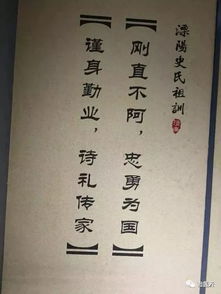 溧陽史氏祖訓
【刚直不阿，忠勇为国】
【谨身勤业，诗礼传家】